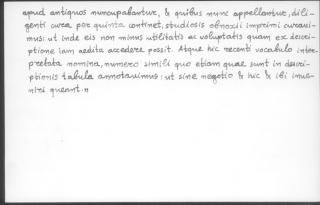 apud antiquos nuncupabantur, & quibus nunc appellantur, dili-
genti cura per quinta continet, studiosis obnoxii imprimi curavi-
mus: ut inde eis non minus utilitatis ac voluptatis quam ex descri-
ptione iam aedita accedere possit. Atque hic recenti vocabulo inter-
pretata nomina, numero simili quo etiam quae sunt in descri-
ptionis tabula annotavimus: ut sine negotio & hic & ibi inve-
niri queant."